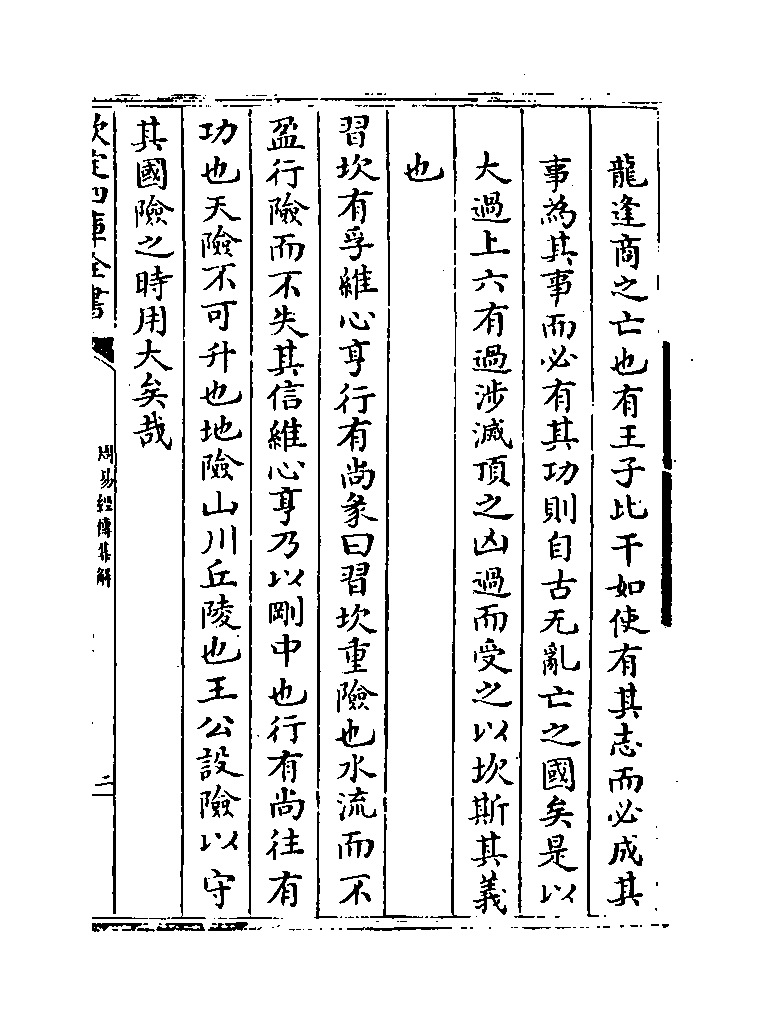 龍逢商之亡也有王子比干如使有其志而必成其
事為其事而必有其功則自古无亂亡之國矣是以
大過上六有過涉滅頂之凶過而受之以坎斯其義
也
習坎有孚維心亨行有尚彖曰習坎重險也水流而不
盈行險而不失其信維心亨乃以剛中也行有尚往有
功也天險不可升也地險山川丘陵也王公設險以守
其國險之時用大矣哉
欽定四庫全書
周易經傳集解
二